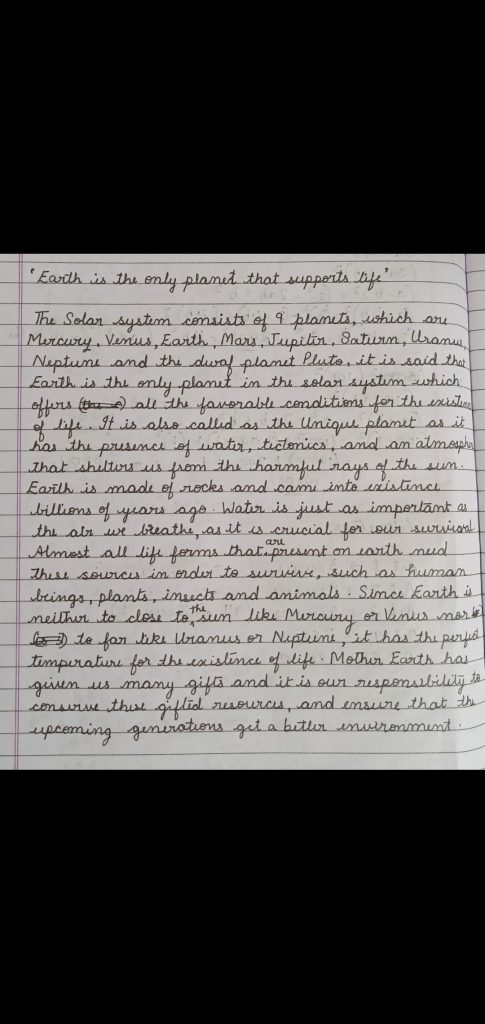 'Earth is the only planet that supports life'
The Solar system consists of 9 planets, which are
Mercury, Venus, Earth, Mars, Jupiter, Saturn, Uranus,
Neptune and the dwaf planet Pluto, it is said that
Earth is the only planet in the solar system which
offers all the favorable conditions for the existence
of life. It is also called as the Unique planet as it
has the presence of water, tectonics, and an atmosphe
that shelters us from the harmful rays of the sun.
Earth is made of rocks and came into existence
billions of years ago. Water is just as important as
the air we breathe, as it is crucial for our survival
Almost all life forms that are present on earth need
these sources in order to survive, such as human
beings, plants, insects and animals. Since Earth is
neither to close to the sun like Mercury or Venus nor is
to far like Uranus or Neptune, it has the perfect
temperature for the existence of life. Mother Earth has
given us many gifts and it is our responsibility to
conserve these gifted resources, and ensure that the
upcoming generations get a better environment.